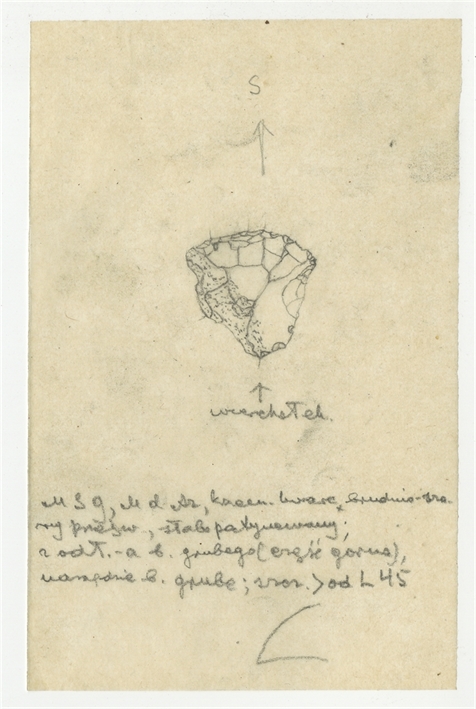 S
wierchołek.
M S g, M d Az, krzem. kwarc, brudno-sza-
ry prześw., słabo patynowany;
z odł.-a b. grubego (część górna),
narzędzie b. grube; > od L 45